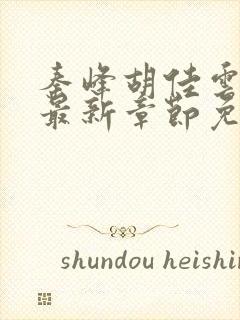 秦峰胡佳雲
最新章節免
shundou heishin